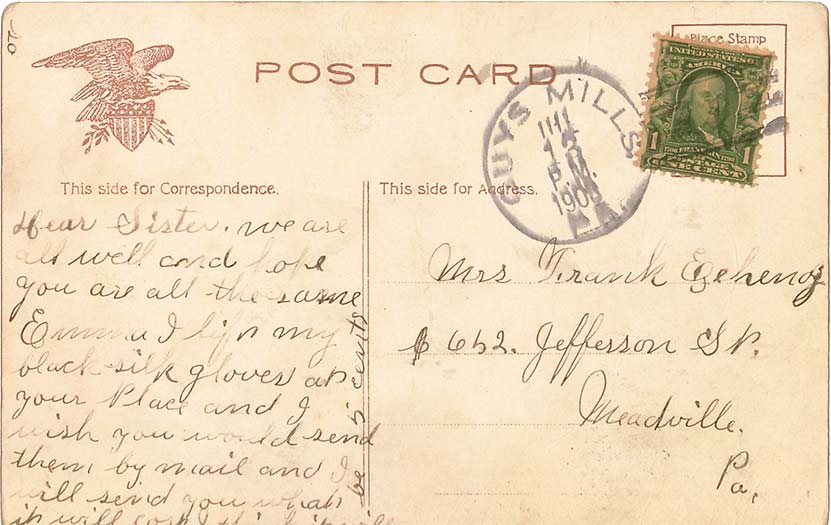 POST CARD
Place Stamp
UNITED STATES OF
AMERICA
1 FRANKLIN 1
POSTAGE
ONE CENT
GUYS MILLS,
P.M.
PA
This side for Correspondence.
This side for Address.
Dear Sister. we are
all well and hope
you are all the same
Emma I left my
black silk gloves at
your Place and I
wish you would send
them by mail and I
will send you what
it will cost
be 5 cents
Mrs Frank
$ 652. Jefferson St.
Meadville.
Pa.